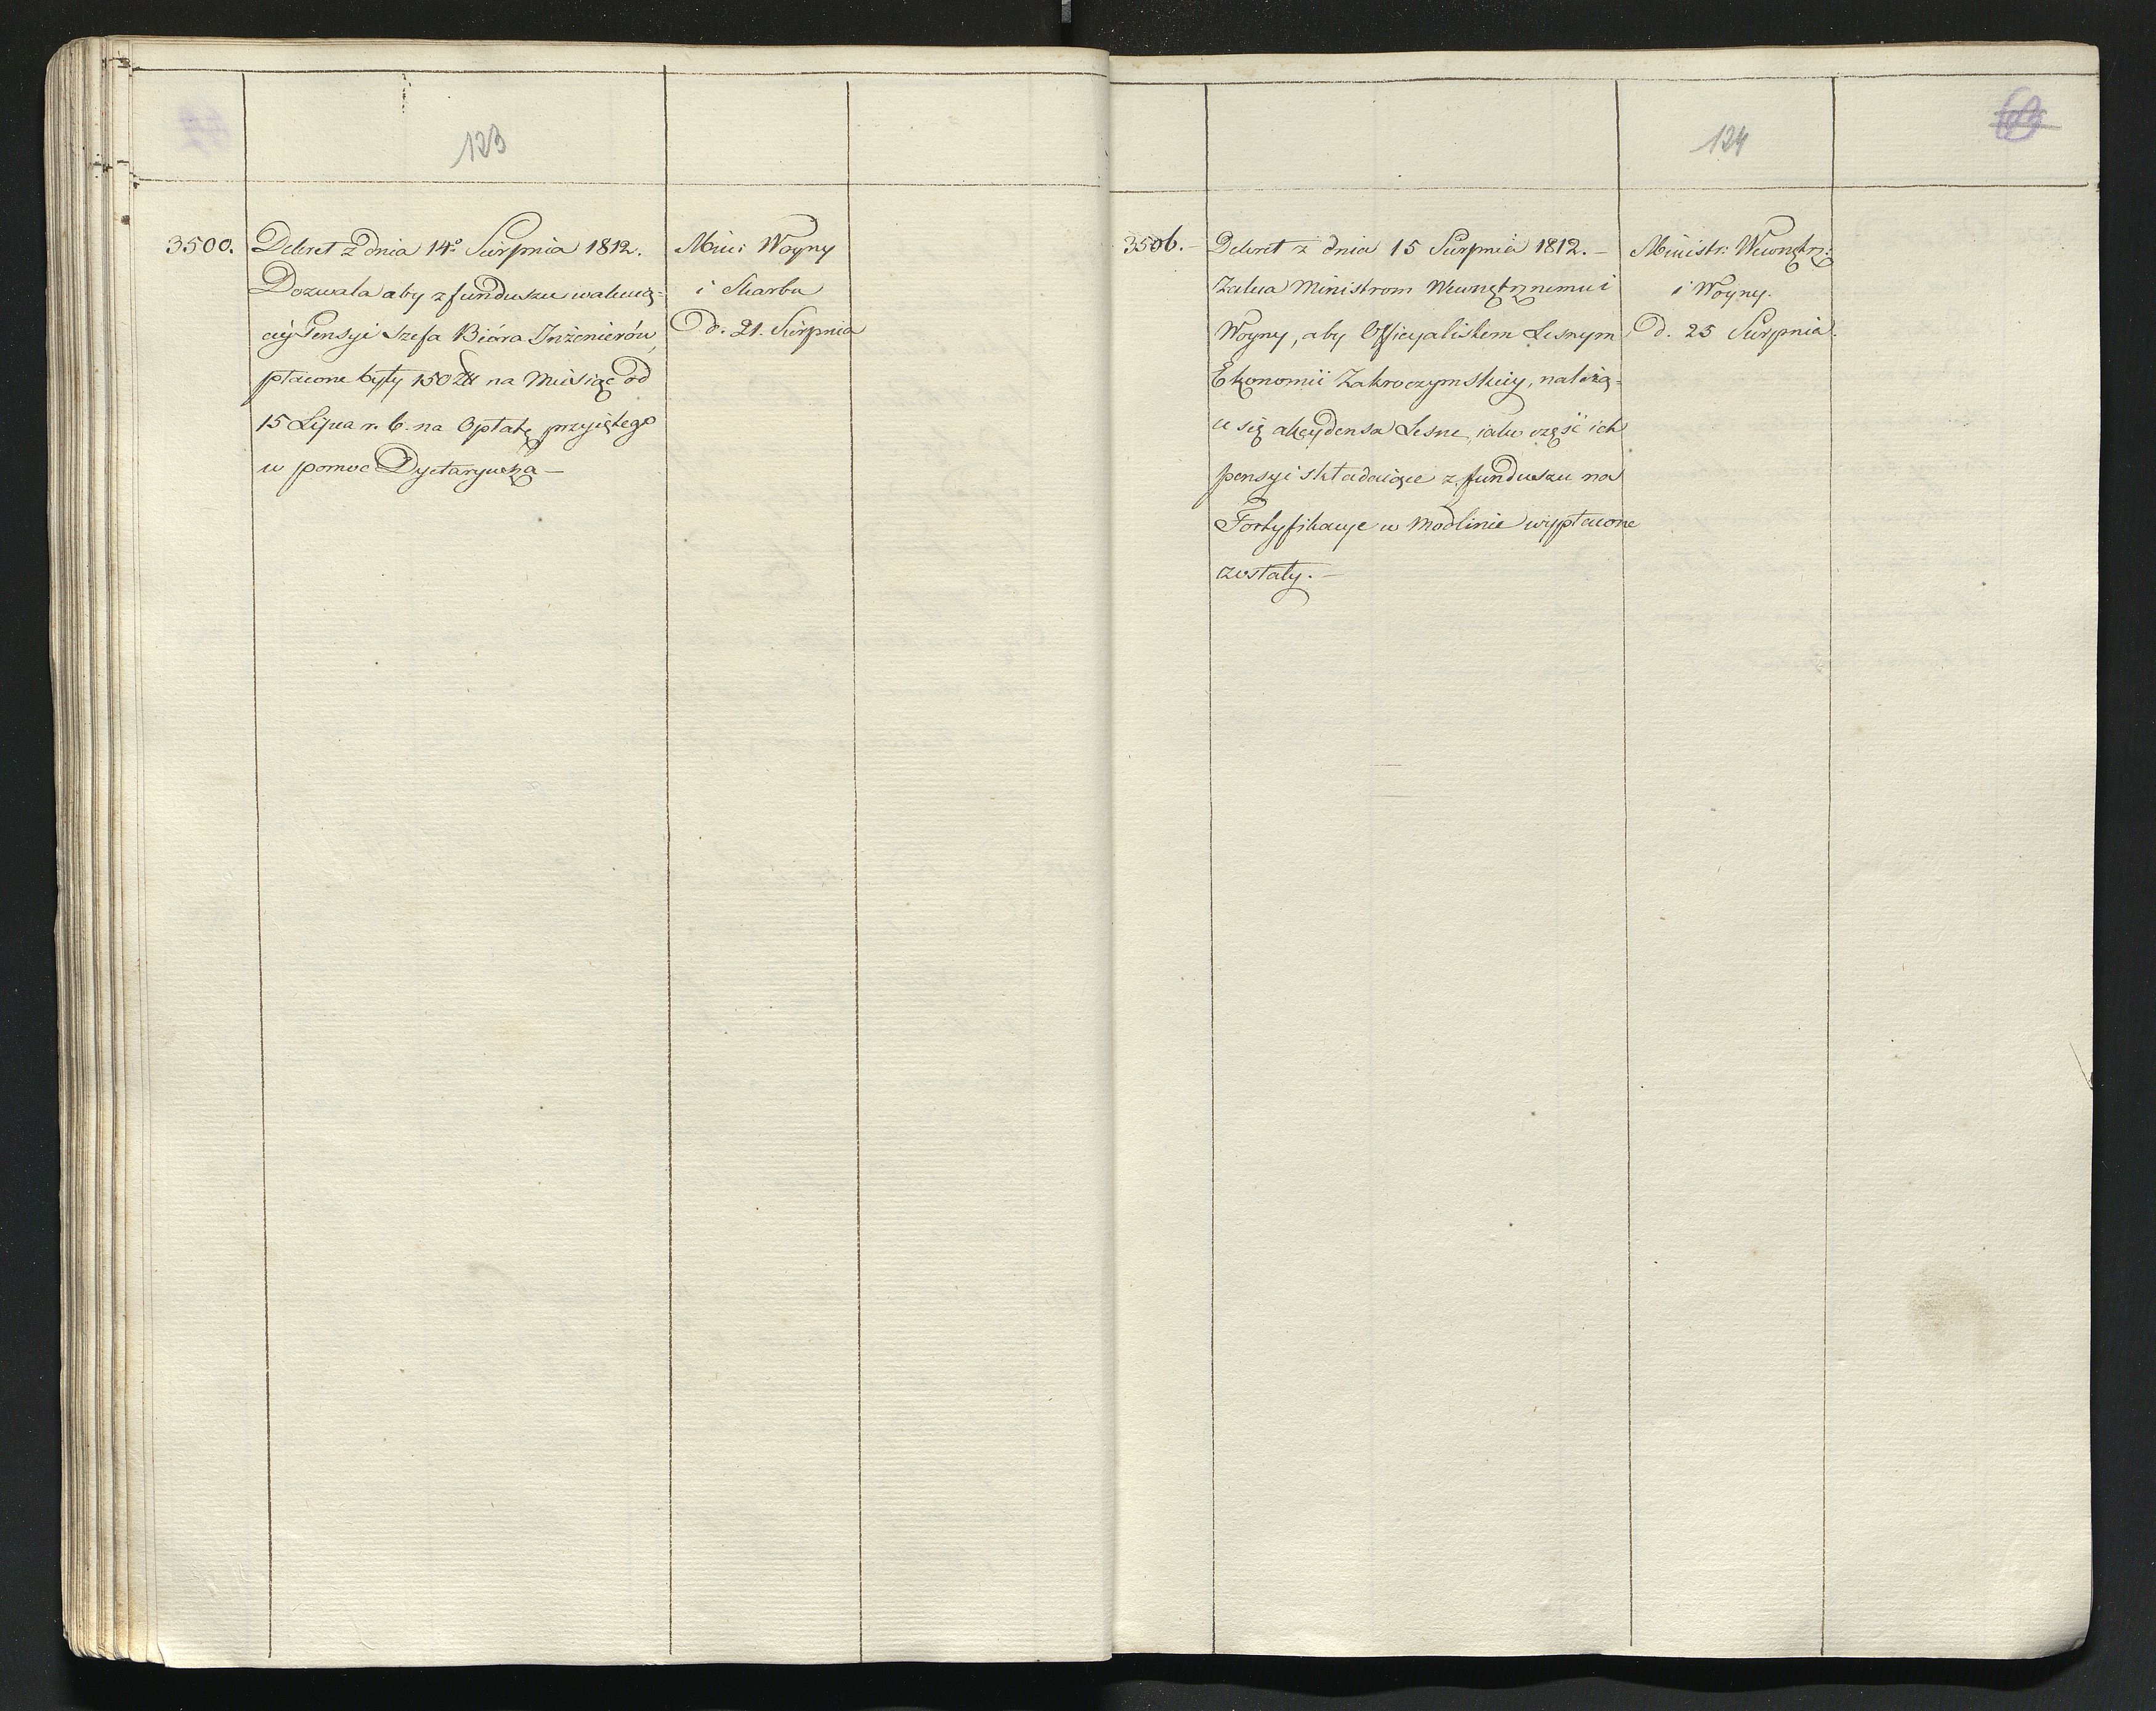 123
3500. Dekret z dnia 14º Sierpnia 1812.
Dozwala aby z funduszu wakuią-
céy Pensyi Szefa Bióra Inżenierów,
płacone były 150 Zł na Miesiąc od
15 Lipca r. b. na Opłatę przyiętego
w pomoc Dyetaryusza —
Mini: Woyny
i Skarbu
D. 21. Sierpnia
124
3506. — Dekret z dnia 15 Sierpnia 1812. —
Zaleca Ministrom Wewnętrznemu i
Woyny, aby Officyalistom Lesnym
Ekonomii Zakroczymskiéy, należą-
ce się akcydensa Lesne, iako część ich
pensyi składaiące z funduszu na
Fortyfikacye w Modlinie wypłacone
zostały. —
Ministr: Wewnętrz:
i Woyny.
D. 25 Sierpnia.